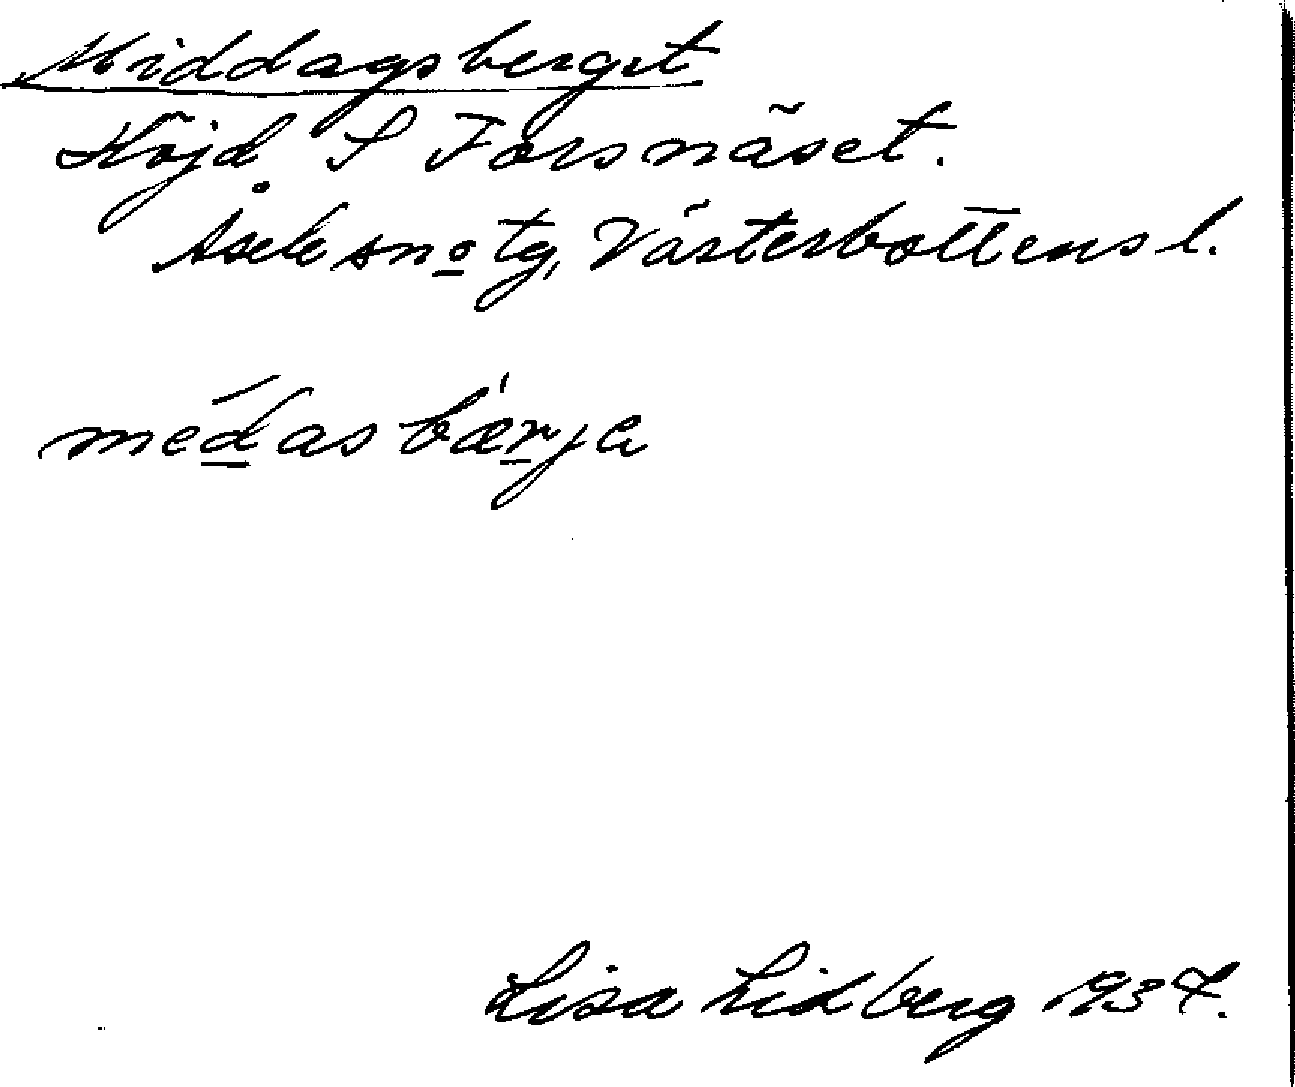 Middagsberget
Höjd S Forsnäset.
Åsele sn o tg, Västerbottens l.
médas bæ'rja
Lisa Lidberg 1937.